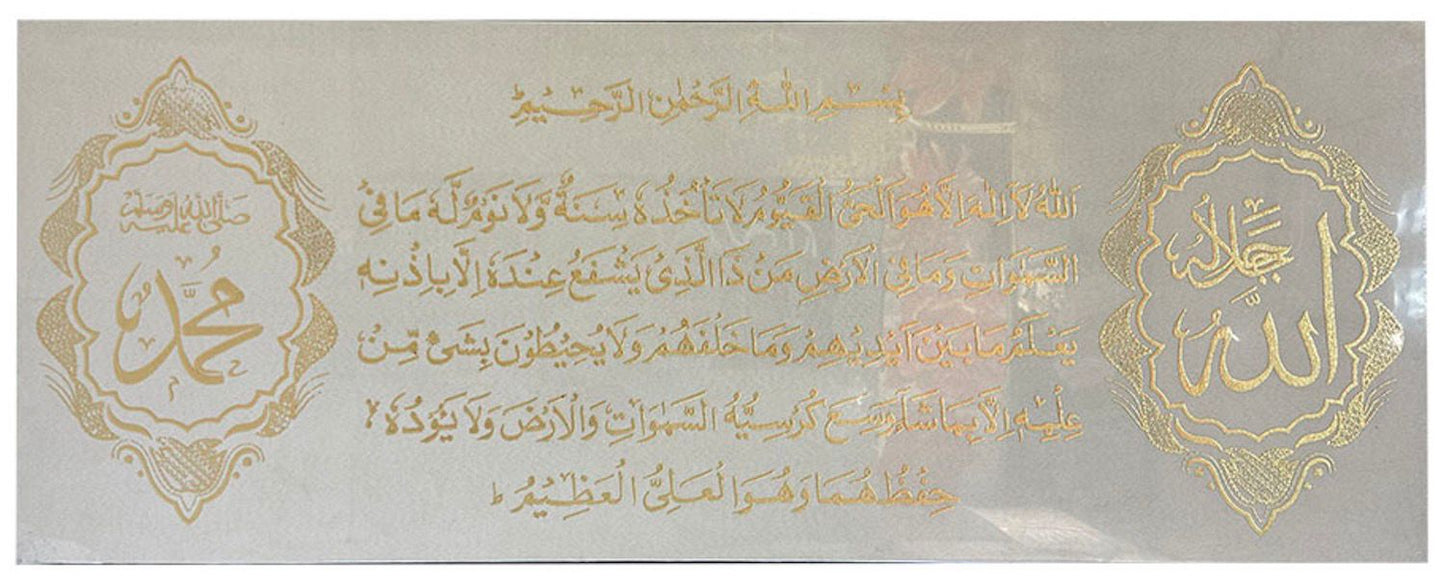 بِسْمِ اللهِ الرَّحْمٰنِ الرَّحِيْمِ
اَللهُ لَا اِلٰهَ اِلَّا هُوَ اَلْحَیُّ الْقَيُّوْمُ لَا تَأْخُذُهٗ سِنَةٌ وَّلَا نَوْمٌ لَهٗ مَا فِی
السَّمٰوَاتِ وَمَا فِی الْاَرْضِ مَنْ ذَا الَّذِیْ يَشْفَعُ عِنْدَهٗ اِلَّا بِاِذْنِهٖ
يَعْلَمُ مَا بَيْنَ اَيْدِيْهِمْ وَمَا خَلْفَهُمْ وَلَا يُحِيْطُوْنَ بِشَیْءٍ مِّنْ
عِلْمِهٖ اِلَّا بِمَا شَآءَ وَسِعَ كُرْسِيُّهُ السَّمٰوَاتِ وَالْاَرْضَ وَلَا يَؤُدُهٗ
حِفْظُهُمَا وَهُوَ الْعَلِیُّ الْعَظِيْمُ ط
جل جلاله
الله
صلى الله عليه وسلم
محمد